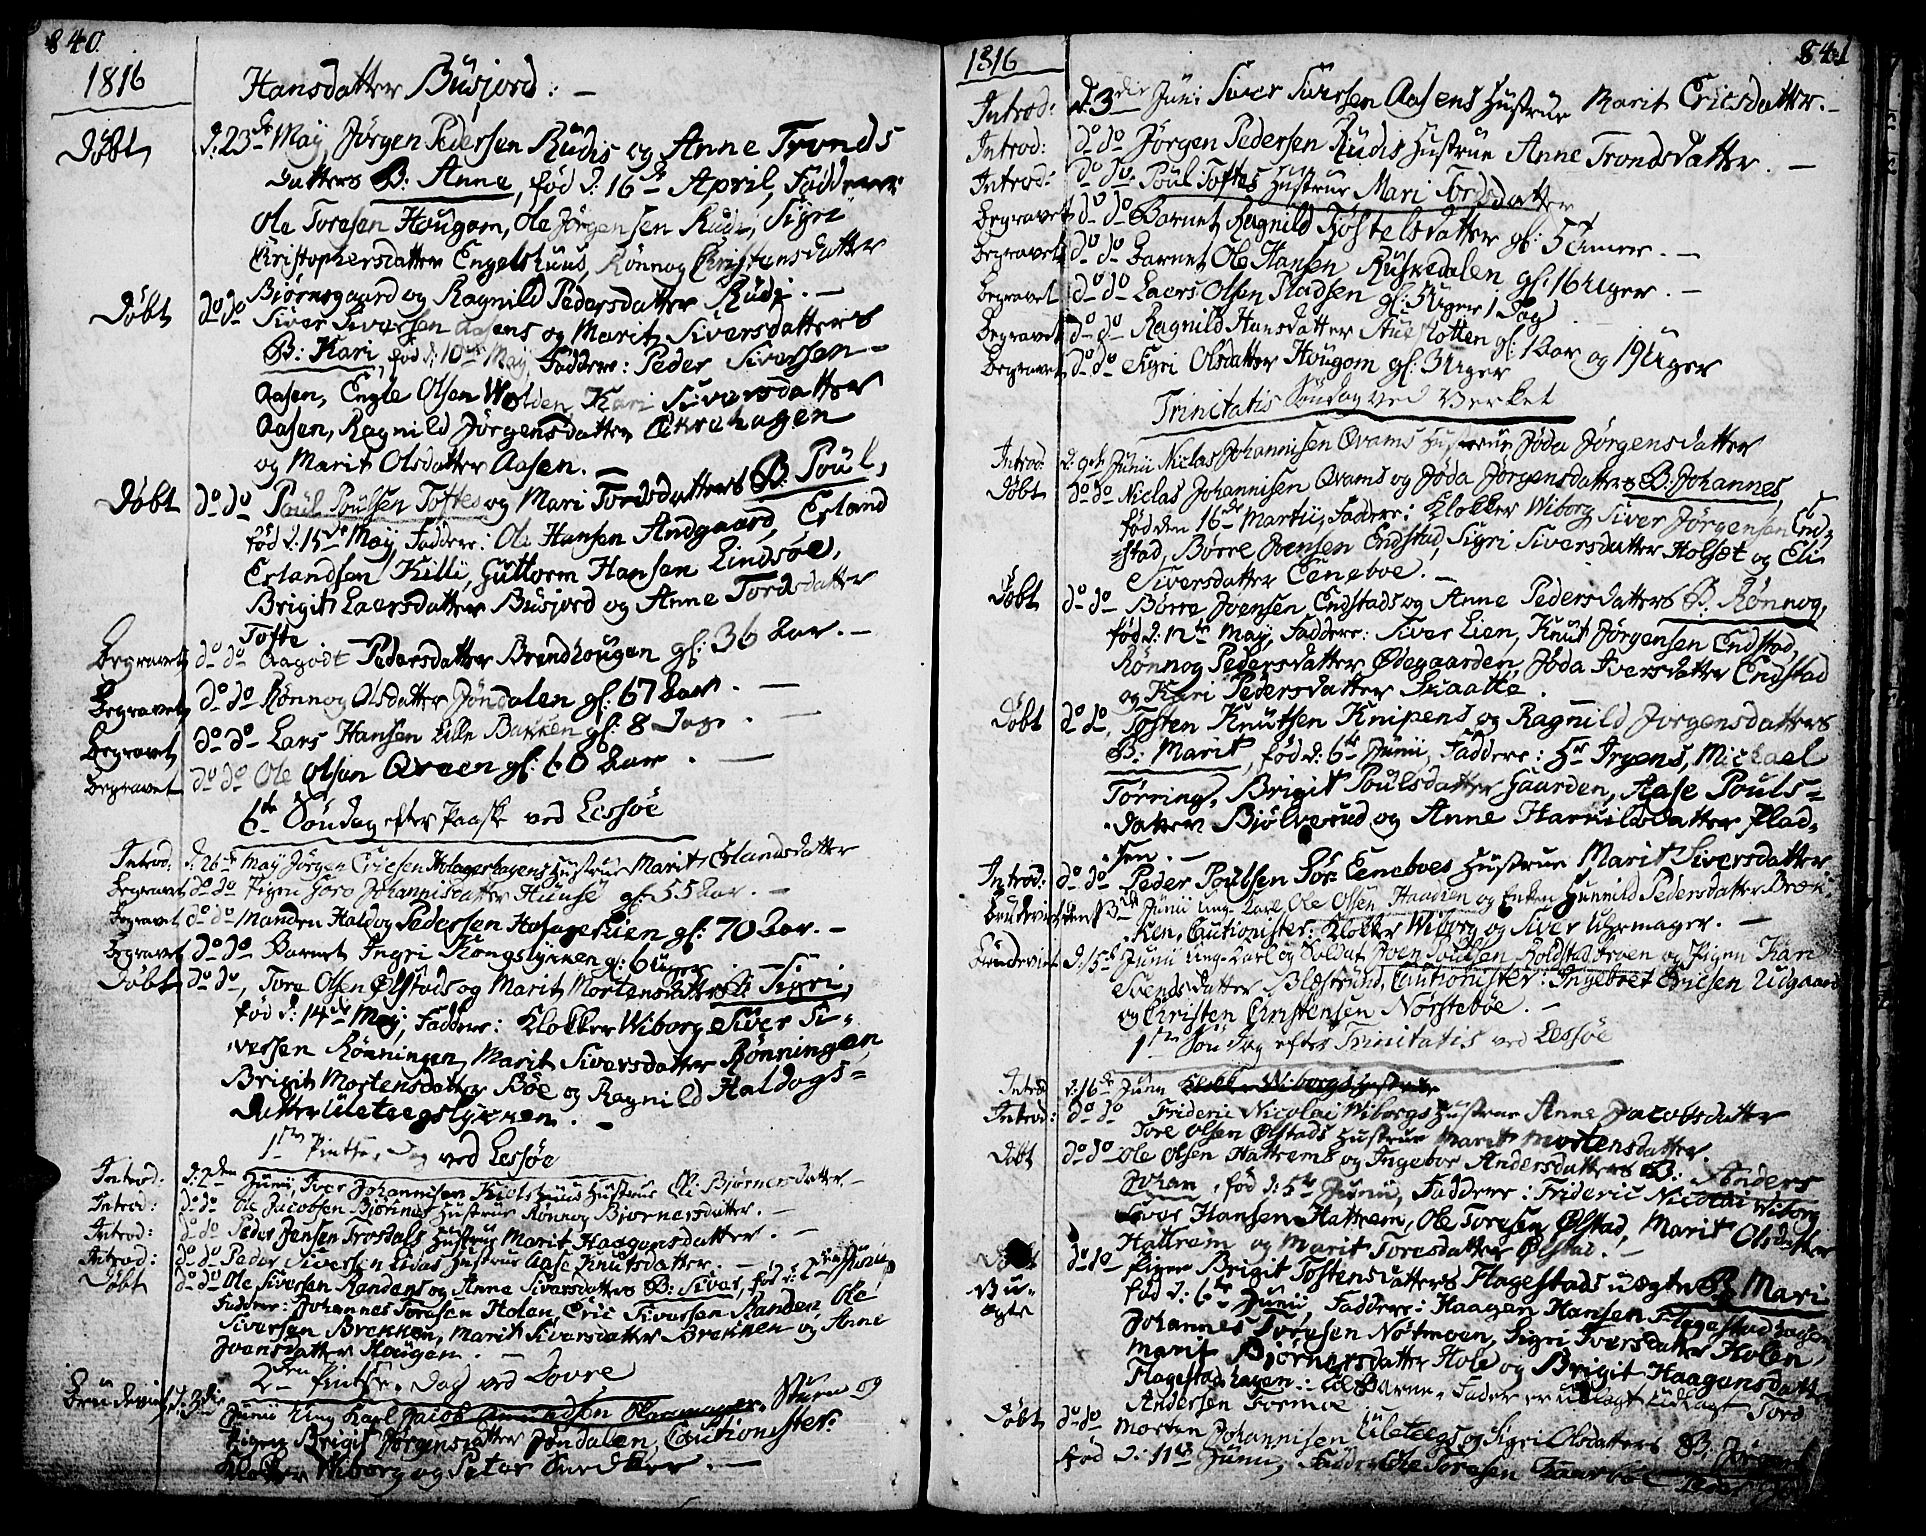 840.
1816
Hansdatter Busjord: —
Døbt d: 23de May Jørgen Pedersen Rudis og Anne Tronds
datters B: Anne, fød d: 16de April, Faddere
Ole Toresen Hougom, Ole Jørgensen Rudi, Sigri
Christophersdatter Engelshuus, Rønnog Christensdatter
Bjørnsgaard og Ragnild Pedersdatter Rudi. —
Døbt do do Siver Siversen Aasens og Marit Siversdatters
B: Kari, fød d: 10de May, Faddere: Peder Siversen
Aasen, Engle Olsen Wolden, Kari Siversdatter
Aasen, Ragnild Jørgensdatter Ekrehagen
og Marit Olsdatter Aasen.
Døbt do do Poul Poulsen Toftes og Mari Tordsdatters B: Poul,
fød d: 15de May, Faddere: Ole Hansen Andgaard, Erland
Erlandsen Killi, Guttorm Hansen Lindsøe,
Brigit Laersdatter Busjord og Anne Tordsdatter
Tofte
Begravet do do Aagodt Pedersdatter Brendhougen gl: 36 Aar. —
Begravet do do Rønnog Olsdatter Jøndalen gl: 67 Aar. —
Begravet do do Lars Hansen Lille Bakken gl: 8 Dage. —
Begravet do do Ole Olsen Qveen gl: 66 Aar. —
6te Søndag efter Paaske ved Lessøe
Introd: d: 26de May Jørgen Ericsen Holageshagens Hustrue Marit Erlandsdatter
Begravet do do Pigen Goro Johannisdatter Huuse gl: 55 Aar. —
Begravet do do Manden Haldog Pedersen Holagelien gl: 70 Aar. —
Begravet do do Barnet Ingri Kongslykken gl: 6 Uger
Døbt do do, Tore Olsen Ølstads og Marit Mortensdatters B: Sigri,
fød d: 14de May, Faddere: Klokker Wiborg, Siver Si-
versen Rønningen, Marit Siversdatter Rønningen,
Brigit Mortensdatter Bøe og Ragnild Haldogs-
datter Uleteegslykken. —
1ste Pintse-Dag ved Lessøe
Introd: d: 2den Junii, Iver Johannisen Kiolshuus Hustrue Eli Bjørnersdatter —
Introd: do do Ole Jacobsen Bjønnes Hustrue Rønnog Bjørnersdatter. —
Introd: do do Peder Jensen Trosdals Hustrue Marit Haagensdatter. —
Introd: do do Peder Siversen Lidas Hustrue Aase Knutsdatter. —
Døbt do do Ole Siversen Randens og Anne Siversdatters B: Siver, fød d: 2den Junii,
Faddere: Johannes Toresen Holen, Eric Siversen Randen, Ole
Siversen Brekken, Marit Siversdatter Brekken og Anne
Joensdatter Hougen. —
2den Pintse-Dag ved Dovre
Brudeviet d: 3die Junii Ung Karl Jacob Amundsen Sturn og
Pigen Brigit Jørgensdatter Jøndalen, Cautionister:
Klokker Wiborg og Peter Snedker. —
1816
841
Introd: d: 3die Juni Siver Siversen Aasens Hustrue Marit Ericsdatter. —
Introd: do do Jørgen Pedersen Rudis Hustrue Anne Trondsdatter. —
Introd: do do Poul Toftes Hustrue Mari Tordsdatter
Begravet do do Barnet Ragnild Tøstelsdatter gl: 5 Timer. —
Begravet do do Barnet Ole Hansen Ruskedalen gl: 16 Uger. —
Begravet do do Laers Olsen Pladsen gl: 5 Uger 1 Dag
Begravet do do Ragnild Hansdatter Stueflotten gl: 1 Aar og 19 Uger
Begravet do do Sigri Olsdatter Hougom gl: 3 Uger
Trinitatis Søndag ved Verket
Introd: d: 9de Junii Niclas Johannisen Qvams Hustrue Jøda Jørgensdatter
Døbt do do Niclas Johannisen Qvams og Jøda Jørgensdatters B: Johannes,
fød den 16de Martii, Faddere: Klokker Wiborg, Siver Jørgensen End-
stad, Børre Joensen Endstad, Sigri Siversdatter Holset og Eli
Siversdatter Eeneboe. —
Døbt do do Børre Joensen Endstads og Anne Pedersdatters B: Rønnog,
fød d: 12te May, Faddere: Siver Lien, Knut Jørgensen Endstad,
Rønnog Pedersdatter Ødegaarden, Jøda Iversdatter Endstad
og Kari Pedersdatter Skaatte.
Døbt do do, Tosten Knutsen Knipens og Ragnild Jørgensdatters
B: Marit, fød d: 6te Junii, Faddere: Hr Irgens, Michael
Tørring, Brigit Poulsdatter Gaarden, Aase Pouls-
datter Bjølverud og Anne Hannibsdatter Plad-
sen. —
Introd: do do Peder Poulsen Sør Eeneboes Hustrue Marit Siversdatter
Brudeviet den 13de Junii Ung Karl Ole Olsen Haadien og Enken Gunnild Pedersdatter Bræk-
ken, Cautionister: Klokker Wiborg og Siver Uhrmager. —
Brudeviet d: 15de Junii Ung Karl og Soldat Joen Poulsen Boldstad Froen og Pigen Kari
Svendsdatter Blæstrund, Cautionister: Ingebret Ericsen Udgaard
og Christen Christensen Norstebøe. —
1ste Søndag efter Trinitatis ved Lessøe
Introd: d: 16de Junii Klokker Wiborgs Hustrue
Frideric Nicolai Wiborgs Hustrue Anne Jacobsdatter
Introd: do do Tore Olsen Ølstads Hustrue Marit Mortensdatter
Døbt do do Ole Olsen Hattrems og Ingebor Andersdatters B: Anders
Johan, fød d: 5te Junii, Faddere: Frideric Nicolai Wiborg
Iver Hansen Hattrem, Ole Toresen Ølstad, Marit Olsdatter
Hattrem og Marit Toresdatter Ølstad. —
Døbt do do Pigen Brigit Tostensdatters Flagestads uægte B: Mari
Uægte fød d: 6te Junii, Faddere: Haagen Hansen Flagestadhagen,
Johannes Toresen Nørmoen, Sigri Iversdatter Holen,
Marit Bjørnersdatter Hole og Brigit Haagensdatter
Flagestadhagen: til Barne-Fader er udlagt Tord
Andersen Formoe
Døbt do do Morten Johannisen Uleteegs og Sigri Olsdatters B: Jørgen
fød d: 11te Junii, Faddere Ole Toresen